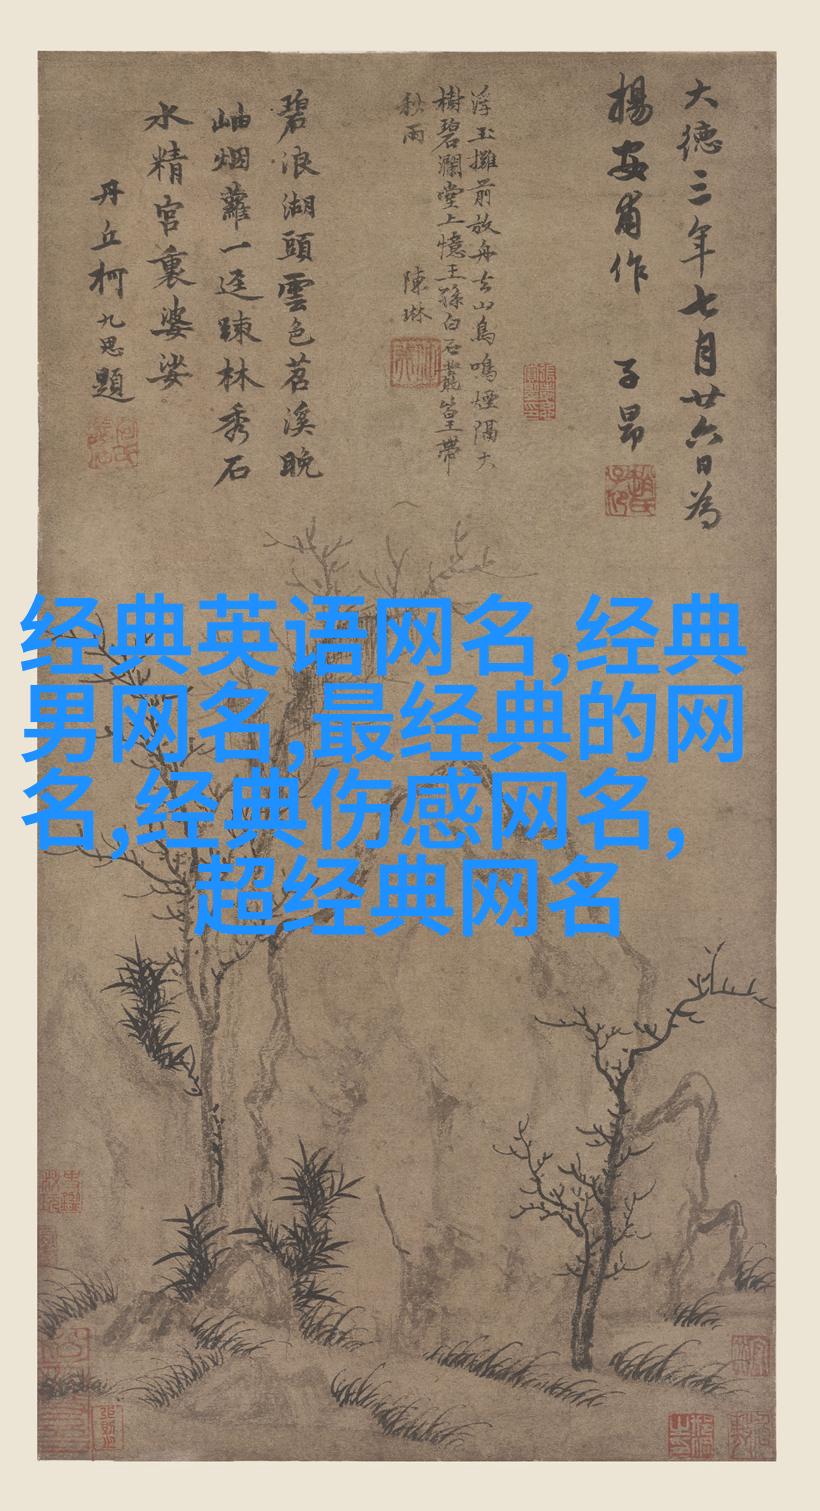 大德三年七月廿六日為
楊安甫作 子昂
浮玉攤前放舟去山鳥鳴煙隔大
樹碧瀾堂上憶王孫白石叢篁帶
秋雨 陳琳
碧浪湖頭雲色苕溪晚
岫烟蘿一逕踈林秀石
水精宮裏婆娑
丹丘柯九思題
经典英语网名,经典
男网名,最经典的网
名,经典伤感网名,
超经典网名